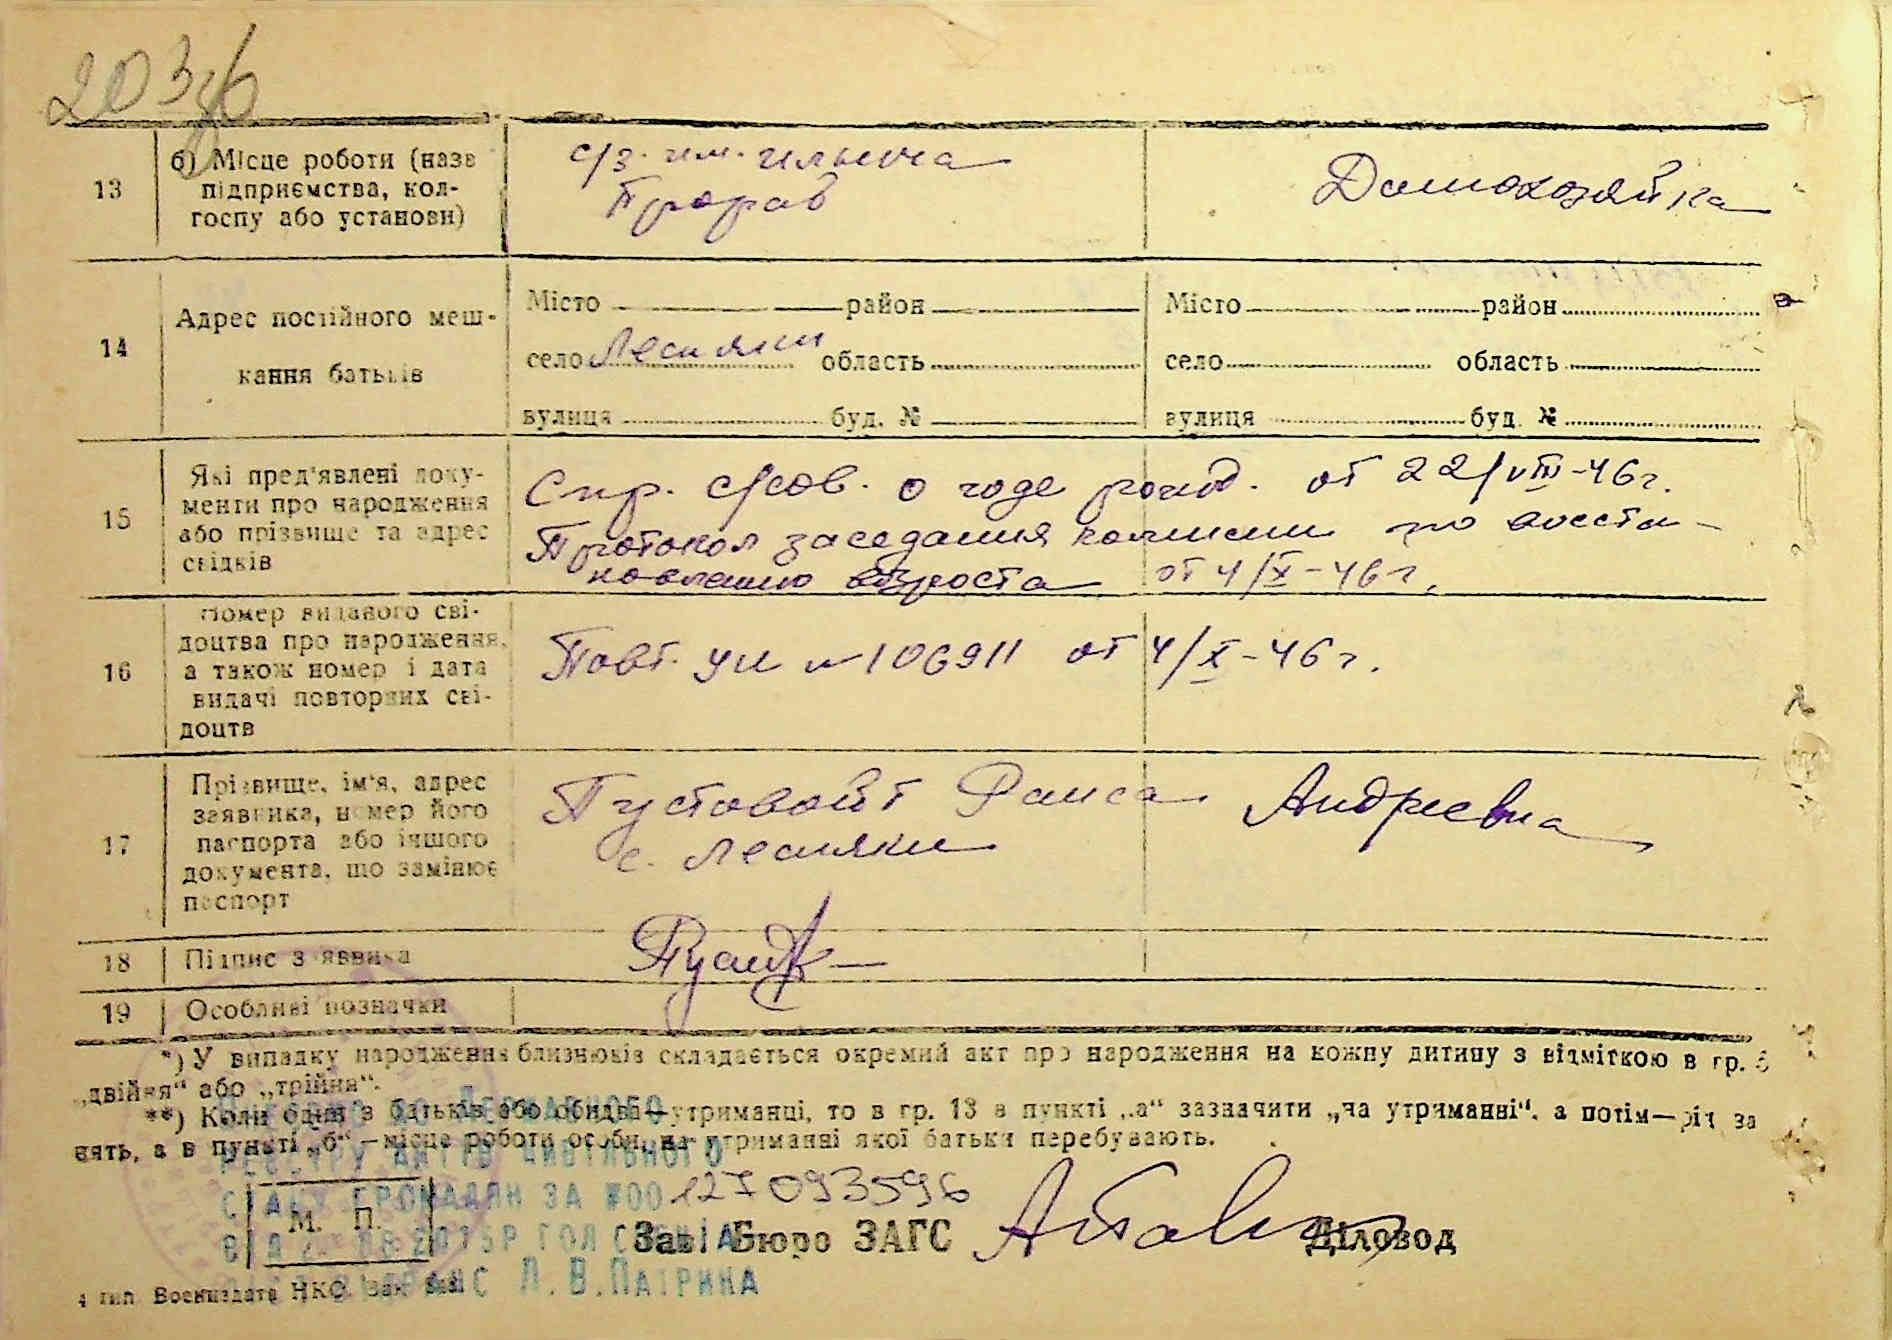 13
б) Місце роботи (назв
підприємства, кол-
госпу або установи)
с/з. им. ильича
Прораб
Домохозяйка
14
Адрес постійного меш-
кання батьків
Місто район
село Лесняки область
вулиця буд. №
Місто район
село область
вулиця буд. №
15
Які пред'явлені доку-
менти про народження
або прізвище та адрес
свідків
Спр. с/сов. о годе рожд. от 22/VIII-46г.
Протокол заседания комиссии по восста-
новлению возроста от 4/X-46г.
16
Номер виданого сві-
доцтва про народження,
а також номер і дата
видачі повторних сві-
доцтв
Повт. УЦ № 106911 от 4/X-46г.
17
Прізвище, ім'я, адрес
заявника, номер його
паспорта або іншого
документа, що замінює
паспорт
Пустовойт Раиса Андреевна
с. Лесняки
18
Підпис заявника
19
Особливі позначки
*) У випадку народження близнюків складається окремий акт про народження на кожну дитину з відміткою в гр. 5
„двійня“ або „трійня“.
**) Коли один з батьків або обидва—утриманці, то в гр. 13 в пункті „а“ зазначити „на утриманні“, а потім—рід за
нять, а в пункті „б“ —місце роботи особи, на утриманні якої батьки перебувають.
Державного
реєстру актів цивільного
стану громадян за №00127093596
М. П.
Зав. Бюро ЗАГС
Діловод
Л.В.Патрина
4 тип. Воениздата НКО. Зак.